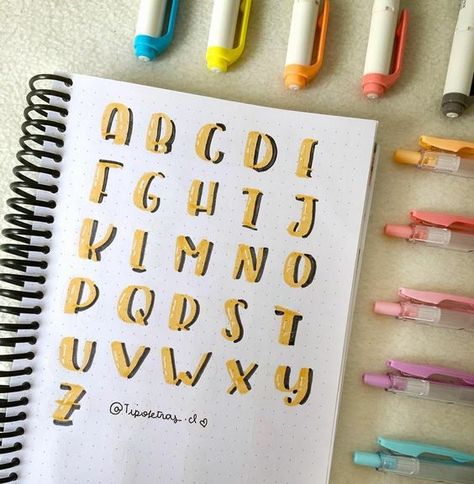 A B C D E
F G H I J
K L M N O
P Q R S T
U V W X Y
Z @Tipoletras.cl ♡